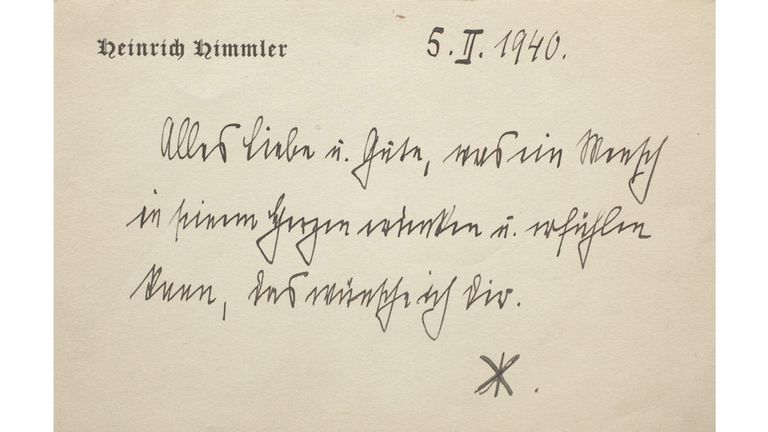 Heinrich Himmler
5. II. 1940.
Alles Liebe u. Gute, was ein Mensch
in seinem Herzen u. erfühlen
kann, das wünsche ich Dir.